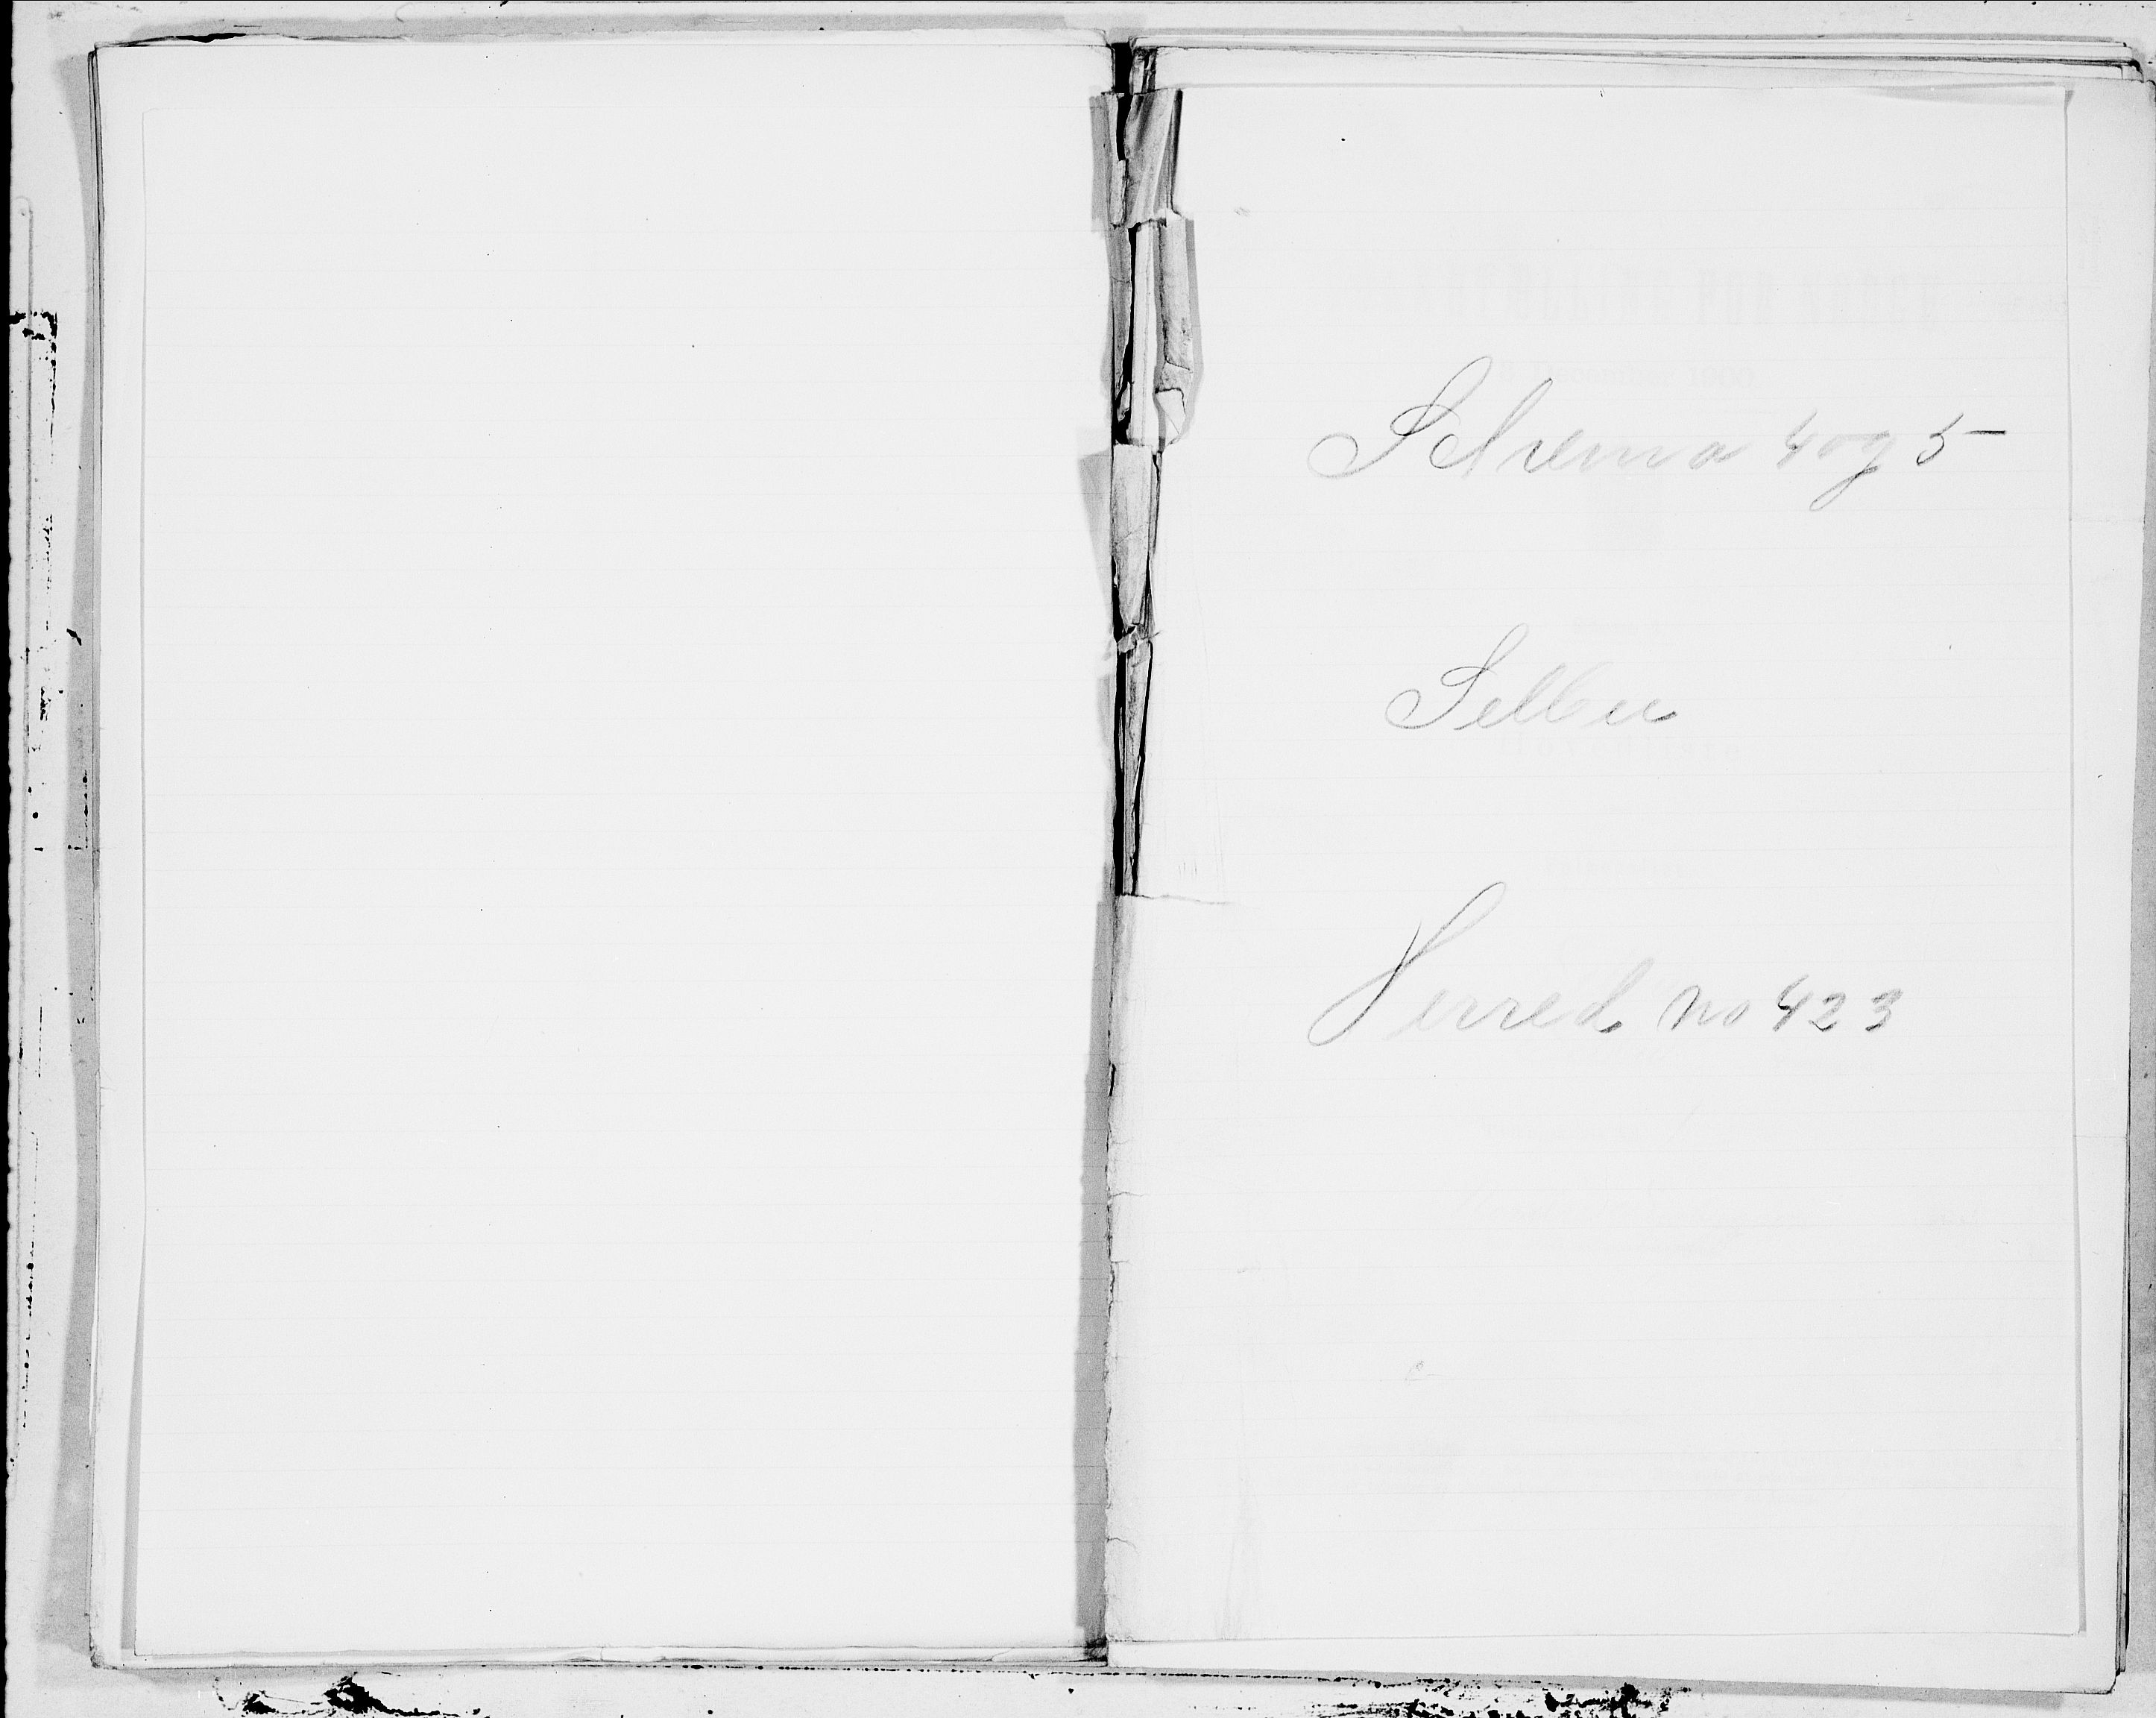 Schema 4 og 5
Selbu
Herred no 423